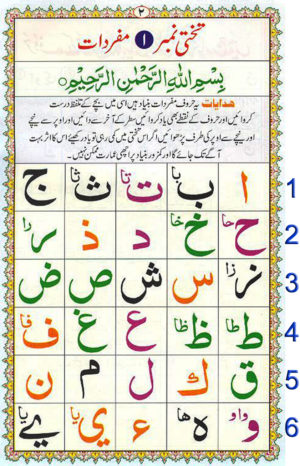 ۲
تختی نمبر ۱ مفردات
بِسْمِ اللهِ الرَّحْمٰنِ الرَّحِيْمِ
ہدایات یہ حروف مفردات بنیاد ہیں اسی میں بچے کے تلفظ درست
کروائیں اور حروف کے نقطے بھی یاد کروائیں سطر کے آخر سے دائیں اور اوپر سے نیچے
اور نیچے سے اوپر کی طرف پڑھوائیں اگر اس تختی میں کمی رہی تو یاد رکھیے اس کا اثر بہت
آگے تک جائے گا اور کمزور بنیاد پر اچھی عمارت ممکن نہیں۔
ا ب با ت تا ث ثا ج 1
ح حا خ خا د ذ ر را 2
ز زا س ش ص ض 3
ط طا ظ ظا ع غ ف فا 4
ق ك ل م ن 5
و واو ه ها ء ي يا ے يا 6